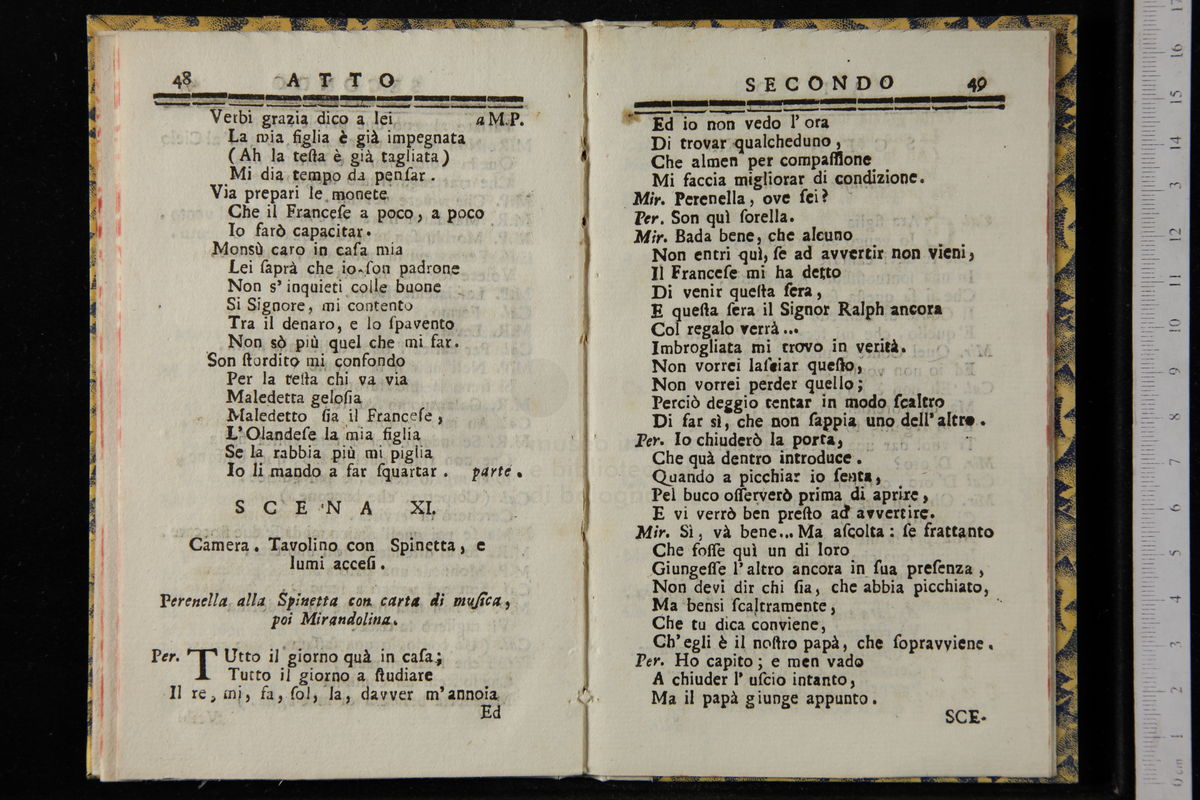 48 ATTO
Verbi grazia dico a lei a M.P.
La mia figlia è già impegnata
(Ah la teſta è già tagliata)
Mi dia tempo da penſar.
Via prepari le monete
Che il Franceſe a poco, a poco
Io farò capacitar.
Monsù caro in caſa mia
Lei ſaprà che io ſon padrone
Non s'inquieti colle buone
Si Signore, mi contento
Tra il denaro, e lo ſpavento
Non sò più quel che mi far.
Son ſtordito mi confondo
Per la teſta chi va via
Maledetta geloſia
Maledetto ſia il Franceſe,
L'Olandeſe la mia figlia
Se la rabbia più mi piglia
Io li mando a far ſquartar. parte.
SCENA XI.
Camera. Tavolino con Spinetta, e
lumi acceſi.
Perenella alla Spinetta con carta di muſica,
poi Mirandolina.
Per. TUtto il giorno quà in caſa;
Tutto il giorno a ſtudiare
Il re, mi, fa, ſol, la, davver m'annoia
Ed
SECONDO 49
Ed io non vedo l'ora
Di trovar qualcheduno,
Che almen per compaſſione
Mi faccia migliorar di condizione.
Mir. Perenella, ove ſei?
Per. Son quì ſorella.
Mir. Bada bene, che alcuno
Non entri quì, ſe ad avvertir non vieni,
Il Franceſe mi ha detto
Di venir queſta ſera,
E queſta ſera il Signor Ralph ancora
Col regalo verrà...
Imbrogliata mi trovo in verità.
Non vorrei laſciar queſto,
Non vorrei perder quello;
Perciò deggio tentar in modo ſcaltro
Di far sì, che non ſappia uno dell'altro.
Per. Io chiuderò la porta,
Che quà dentro introduce.
Quando a picchiar io ſenta,
Pel buco oſſerverò prima di aprire,
E vi verrò ben preſto ad avvertire.
Mir. Sì, và bene... Ma aſcolta: ſe frattanto
Che foſſe quì un di loro
Giungeſſe l'altro ancora in ſua preſenza,
Non devi dir chi ſia, che abbia picchiato,
Ma bensi ſcaltramente,
Che tu dica conviene,
Ch'egli è il noſtro papà, che ſopravviene.
Per. Ho capito; e men vado
A chiuder l'uſcio intanto,
Ma il papà giunge appunto.
SCE-